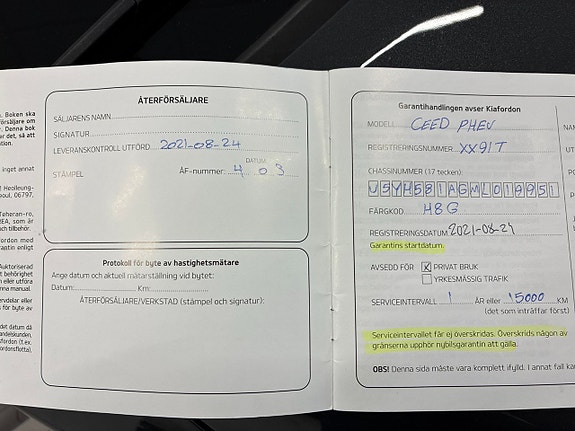 n. Boken ska
försäljare om
r. Denna bok
er det, så att
ation.
inget annat
l Heolleung-
Seoul, 06797,
Teheran-ro,
som är
och tillbehör.
fordon med
garantin enligt
Auktoriserad
t behörighet
n eller utföra
nna manual.
ÅTERFÖRSÄLJARE
SÄLJARENS NAMN
SIGNATUR
LEVERANSKONTROLL UTFÖRD 2021-08-24
DATUM
STÄMPEL ÅF-nummer: 4 03
Protokoll för byte av hastighetsmätare
Ange datum och aktuel mätarställning vid bytet:
Datum: Km:
ÅTERFÖRSÄLJARE/VERKSTAD (stämpel och signatur):
Garantihandlingen avser Kiafordon
MODELL CEED PHEV
REGISTRERINGSNUMMER XX91T
CHASSINUMMER (17 tecken)
U5YH581AGML019951
FÄRGKOD H8G
REGISTRERINGSDATUM 2021-08-24
Garantins startdatum.
AVSEDD FÖR X PRIVAT BRUK
YRKESMÄSSIG TRAFIK
SERVICEINTERVALL 1 ÅR eller 15000 KM
(det som inträffar först)
Serviceintervallet får ej överskridas. Överskrids någon av
gränserna upphör nybilsgarantin att gälla.
OBS! Denna sida måste vara komplett ifylld. I annat fall kan